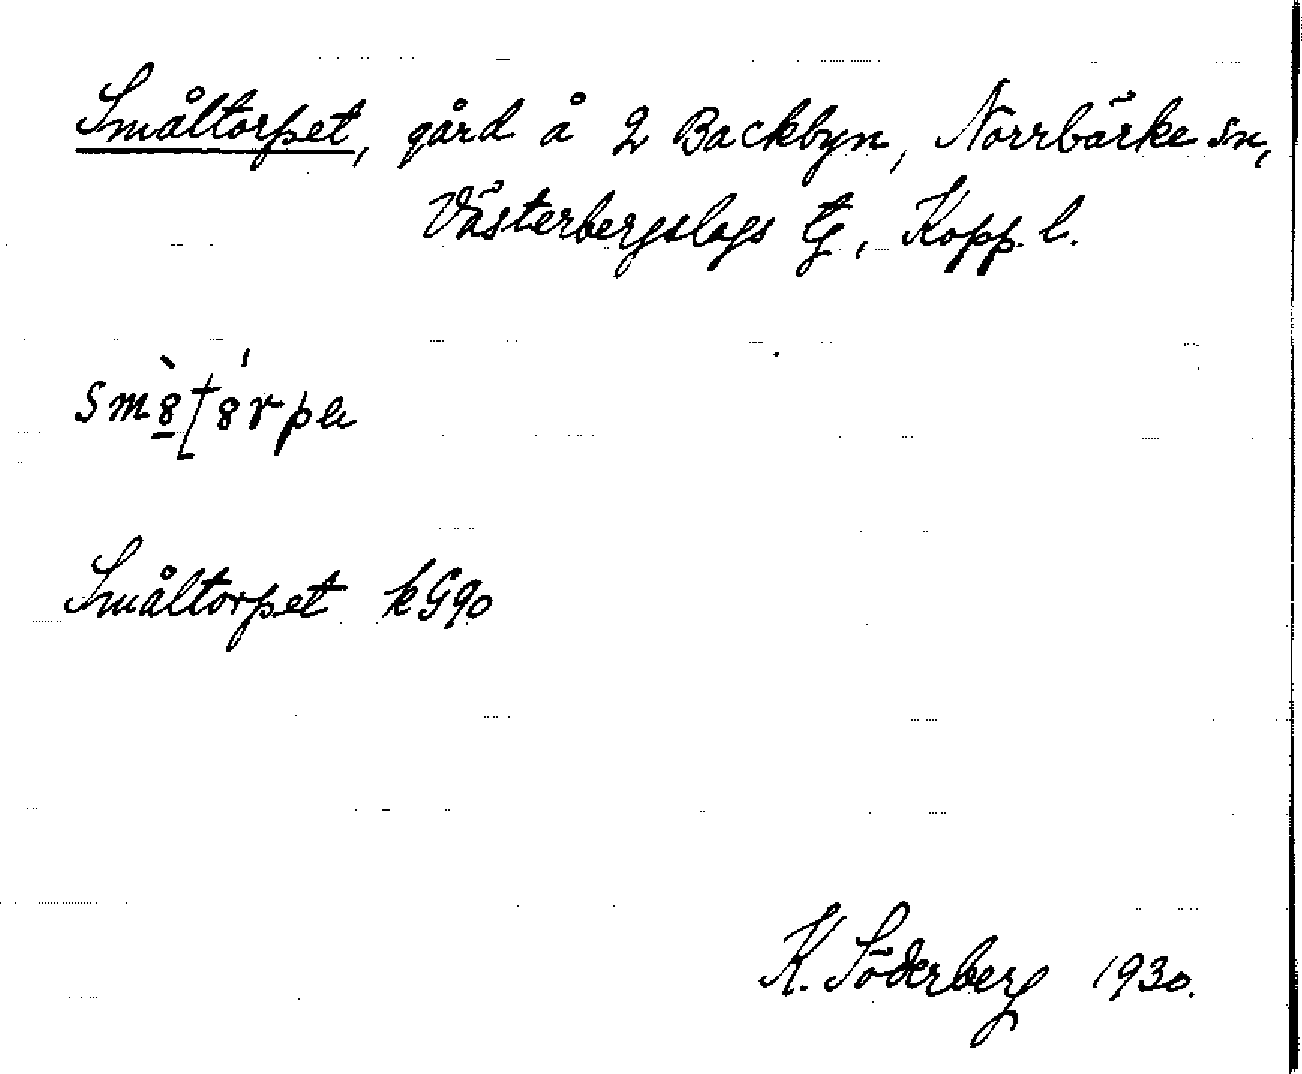 Småltorpet, gård å 2 Backbyn, Norrbärke sn,
Västerbergslags tg, Kopp. l.
Småltorpet kG90
K. Söderberg 1930.